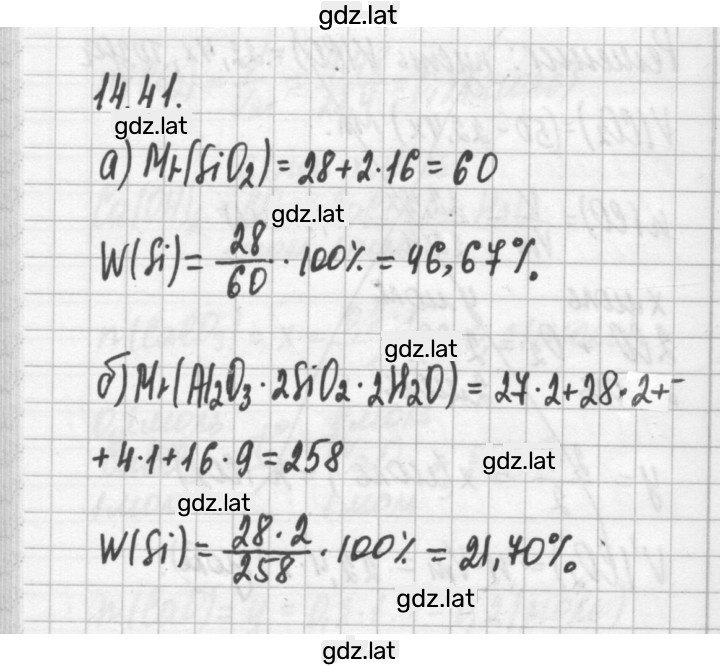 gdz.lat
14.41.
gdz.lat
а) Mr(SiO₂) = 28 + 2·16 = 60
gdz.lat
W(Si) = 28/60 · 100% = 46,67%.
gdz.lat
б) Mr(Al₂O₃·2SiO₂·2H₂O) = 27·2+28·2+
+4·1+16·9=258
gdz.lat
gdz.lat
W(Si) = 28·2/258 · 100% = 21,70%.
gdz.lat
gdz.lat